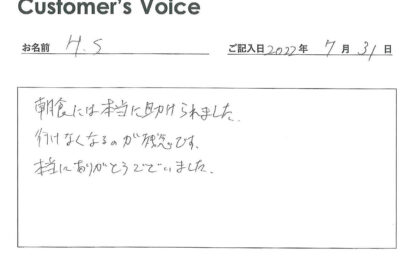 Customer's Voice
お名前 H.S ご記入日2022年 7月 31日
朝食には本当に助けられました.
行けなくなるのが残念です.
本当にありがとうございました.